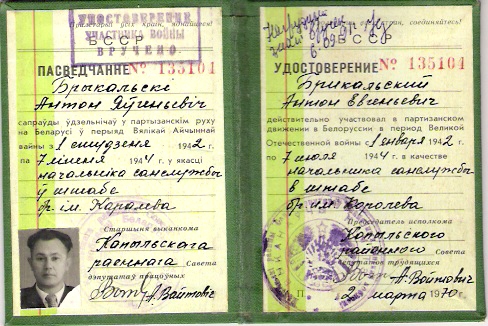 УДОСТОВЕРЕНИЕ
УЧАСТНИКА ВОЙНЫ
ВРУЧЕНО
БССР
ПАСВЕДЧАННЕ № 135104
Брыкальскі
Антон Яўгеньевіч
сапраўды ўдзельнічаў у партызанскім руху
на Беларусі ў перыяд Вялікай Айчыннай
вайны з 1 студзеня 1942 г.
па 7 ліпеня 1944 г. у якасці
начальніка санслужбы
ў штабе
бр. ім. Каралева
Старшыня выканкома
Капыльскага
раённага Савета
дэпутатаў працоўных
А. Войтовіч
соединяйтесь!
БССР
УДОСТОВЕРЕНИЕ № 135104
Брикальский
Антон Евгеньевич
действительно участвовал в партизанском
движении в Белоруссии в период Великой
Отечественной войны с 1 января 1942 г.
по 7 июля 1944 г. в качестве
начальника санслужбы
в штабе
бр. им. Королева
Председатель исполкома
Копыльского
районного Совета
депутатов трудящихся
А. Войтович
2 марта 1970 г.